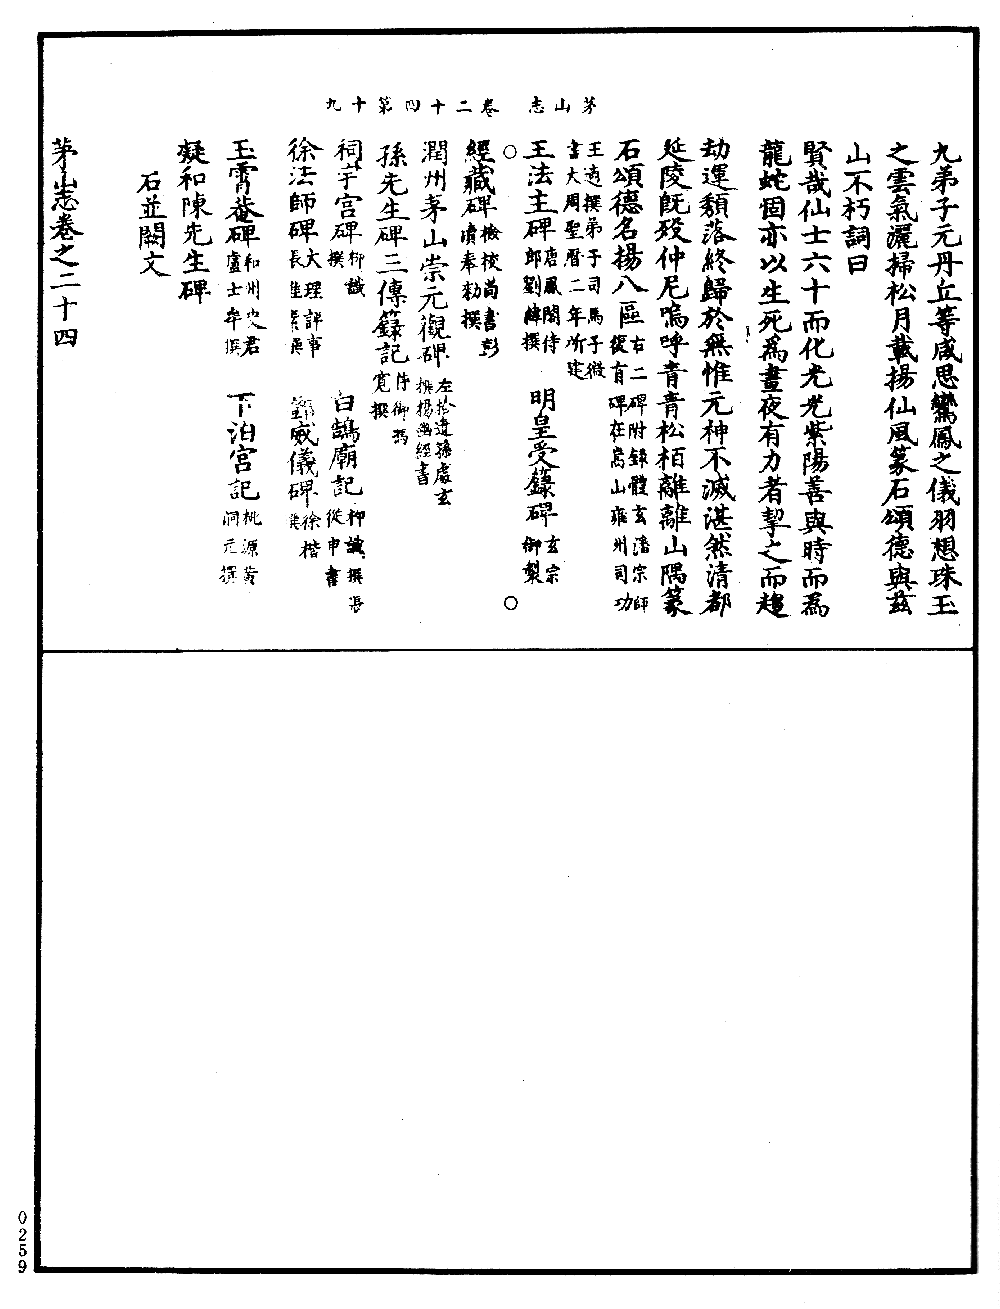 茅山志　卷二十四第十九
九弟子元丹丘等咸思鸞鳳之儀羽想珠玉
之雲氣灑掃松月載揚仙風篆石頌德與茲
山不朽詞曰
賢哉仙士六十而化光光紫陽善與時而為
龍蛇固亦以生死為晝夜有力者挈之而趨
劫運頹落終歸於無惟元神不滅湛然清都
延陵既歿仲尼嗚呼青青松栢離離山隅篆
石頌德名揚八區右二碑附錄體玄潘宗師
復有碑在嵩山雍州司功
王適撰弟子司馬子微
書大周聖曆二年所建
王法主碑唐鳳閣侍
郎劉禕撰　明皇受籙碑玄宗
御製
○　○
經藏碑檢校尚書彭
濆奉勑撰
潤州茅山崇元觀碑左拾遺孫處玄
撰楊幽經書
孫先生碑三傳籙記侍御馮
寬撰
祠宇宮碑柳識
撰　白鶴廟記柳識撰張
從申書
徐法師碑大理評事
威儀碑徐楷
玉霄菴碑和州史君
盧士牟撰　下泊宮記桃源黃
洞元撰
凝和陳先生碑
石並闕文
茅山志卷之二十四
0259